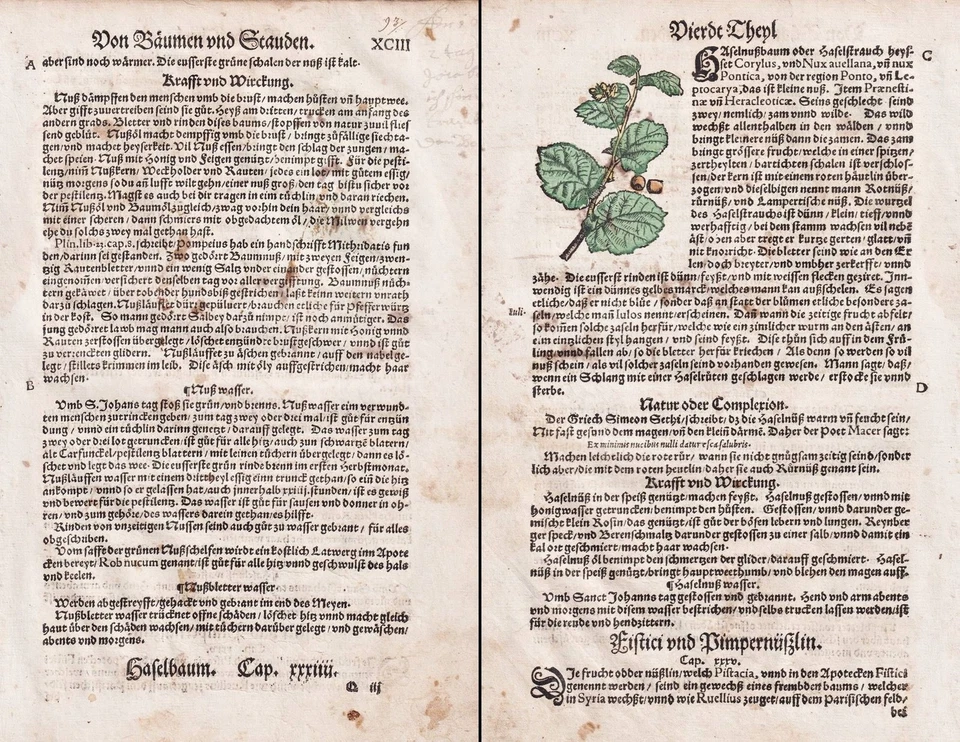 937
Von Bäumen vnd Stauden. XCIII
A aber sind noch wärmer. Die eusserste grüne schalen der nüß ist kalt.
Krafft vnd Wirckung.
Nuß dämpffen den menschen vmb die brust/ machen hůsten vñ hauptwee.
Aber gifft zuuertreiben seind sie gůt. Heyß am dritten/ trucken am anfang des
andern grads. Bletter vnd rinden dises baums/ stopffen von natur zuuil flies
send geblüt. Nußöl macht dempffig vmb die brust/ bringt zůfällige fiechta-
gen/ vnd machet heyserkeit. Vil Nuß essen/ bringt den schlag der zungen/ ma-
chet speien. Nuß mit Honig vnd Feigen genützt/ benimpt gifft. Für die pesti-
lentz/ nim̃ Nußkern/ Weckholder vnd Rauten/ jedes ein lot/ mit gůtem essig/
nütz morgens so du an lufft wilt gehn/ einer nuß groß/ den tag bistu sicher vor
der pestilentz. Magst es auch bei dir tragen in eim tüchlin vnd daran riechen.
Nim̃ Nußöl vnd Baumöl zugleich/ zwag vorhin dein haar/ vnnd vergleichs
mit einer scheren/ dann schmiers mit obgedachtem öl/ die Milwen vergehn
ehe du solchs zwey mal gethan hast.
Plin. lib. 23. cap. 8. schreibt/ Pompeius hab ein handschrifft Mithridatis fun
den/ darinn sei gestanden. Zwo gedörrt Baumnuß/ mit zweyen Feigen/ zwen-
tzig Rautenbletter/ vnnd ein wenig Saltz vnder einander gestossen/ nüchtern
eingenommen/ versichert denselben tag vor aller vergifftung. Baumnuß nüch-
tern gekäwet/ über tobender hundsbiß gestrichen/ laßt keinn weitern vnrath
darzů schlagen. Nußläufft dürr gepüluert/ brauchen etliche für Pfefferwürtz
in der kost. So mann gedörrt Salbey darzů nimpt/ ist noch anmůtiger. Das
jung gedörret laub mag mann auch also brauchen. Nußkern mit Honig vnnd
Rauten zerstossen übergelegt/ löschet entzündte brustgeschwer/ vnnd ist gůt
zu verrenckten glidern. Nußläuffet zu äschen gebrannt/ auff den nabel ge-
legt/ stillets krimmen im leib. Dise äsch mit öly auffgestrichen/ macht haar
B wachsen.
¶ Nuß wasser.
Vmb S. Johans tag stoß sie grün/ vnd brenne. Nußwasser eim verwund-
ten menschen zu trinck en geben/ zum tag zwey oder drei mal/ ist gůt für entzün
dung/ vnnd ein tüchlin darinn genetzt/ darauff gelegt. Das wasser zum tag
zwey oder drei lot getruncken/ ist gůt für alle hitz/ auch zun schwartzẽ blatern/
als Carfunckel/ pestilentz blattern/ mit leinen tüchern übergelegt/ dann es lö-
schet vnd legt das wee. Die eusserste grün rinde brenn im ersten Herbstmonat.
Nußläuffen wasser mit einem drittheyl essig einn trunck gethan/ so ein die hitz
ankompt/ vnnd so er gelassen hat/ auch jnnerhalb xxiiij. stunden/ ist es gewiß
vnd bewert für die pestilentz. Das wasser ist gůt für sausen vnd donner in oh-
ren/ vnd zum gehöre/ des wassers darein gethan/ es hilfft.
Rinden von vnzeitigen Nussen seind auch gůt zu wasser gebrant/ für alles
obgeschriben.
Vom safft der grünen Nußschelfen wirdt ein kostlich Latwerg inn Apote
cken bereyt/ Rob nucum genant/ ist gůt für alle hitz vnnd geschwulst des hals
vnd keelen.
¶ Nußbletter wasser.
Werden abgestreyfft/ gehackt vnd gebrant im end des Meyen.
Nußbletter wasser trücknet offne schäden/ löschet hitz vnnd macht gleich
haut über den schäden wachsen/ mit tüchern darüber gelegt/ vnd gewäschen/
abents vnd morgens.
Haselbaum. Cap. xxxiiii.
Q iij
Vierdt Theyl
C
HAselnußbaum oder Haselstrauch heys-
set Corylus, vnd Nux auellana, vñ nux
Pontica, von der region Ponto, vñ Le-
ptocarya, das ist kleine nuß. Item Prænesti-
næ vñ Heracleoticæ. Seins geschlecht seind
zwey/ nemlich/ zam vnnd wilde. Das wild
wechßt allenthalben in den wälden/ vnnd
bringt kleinere nüß dann die zamen. Das zam
bringt grössere frucht/ welche in einer spitzen/
zertheylten/ bartichten schalen ist verschlos-
sen/ der kern ist mit einem roten häutlin über-
zogen/ vnd dieselbigen nennt mann Rotnüß/
rürnüß/ vnd Lampertische nüß. Die wurtzel
des Haselstrauchs ist dünn/ klein/ tieff/ vnnd
werhafftig/ bei dem stamm wachsen vil nebẽ
äst/ oben aber tregt er kurtze gerten/ glatt/ vñ
nit knoricht. Die bletter seind wie an den Er
len/ doch breyter/ vnd vmbher zerkerfft/ vnnd
zähe. Die eusserst rinden ist dünn/ feyßt/ vnd mit weissen flecken gezirt. Inn-
wendig ist ein dünnes gelbes marck/ welches mann kan außschelen. Es sagen
etliche/ daß er nicht blüe/ sonder daß an statt der blůmen etliche besondere za-
Iuli. seln/ welche mañ Iulos nennt/ erscheinen. Das wann die zeitige frucht abfelt/
so kom̃en solche zaseln herfür/ welche wie ein zimlicher wurm an den ästen/ an
eim eintzlichen styl hangen/ vnd seind feyßt. Dise thůn sich auff in dem Frü-
ling/ vnnd fallen ab/ so die bletter herfür kriechen/ Als denn so werden so vil
nuß schein/ als vil solcher zaseln seind vorhanden gewesen. Mann sagt/ daß/
wenn ein Schlang mit einer Haselrůten geschlagen werde/ erstocke sie vnnd D
sterbe.
Natur oder Complexion.
Der Griech Simeon Sethi/ schreibt/ dz die Haselnuß warm vñ feucht sein/
Nit fast gesund dem magen/ vñ den kleinẽ därmẽ. Daher der Poet Macer sagt:
Ex minimis nucibus nulli datur esca salubris.
Machen leichtlich die rote růr/ wann sie nicht gnůgsam zeitig seind/ sonder
lich aber/ die mit dem roten heutlin/ daher sie auch Rürnüß genant sein.
Krafft vnd Wirckung.
Haselnüß in der speiß genützt/ machen feyßt. Haselnuß gestossen/ vnnd mit
honigwasser getruncken/ benimpt den hůsten. Gestossen/ vnnd darunder ge-
mischt klein Rosin/ das genützt/ ist gůt der bösen lebern vnd lungen. Reynber
ger speck/ vnd Berenschmaltz darunder gestossen zu einer salb/ vnnd damit ein
kal ort geschmiert/ macht haar wachsen.
Haselnuß öl benimpt den schmertzen der glider/ darauff geschmiert. Hasel-
nüß in der speiß genützt/ bringt hauptweethumb/ vnd blehen den magen auff.
¶ Haselnuß wasser.
Vmb Sanct Johanns tag gestossen vnd gebrannt. Hend vnd arm abents
vnd morgens mit disem wasser bestrichen/ vnd selbs trucken lassen werden/ ist
für die reude vnd hendzittern.
Fistici vnd Pimpernüßlin.
Cap. xxxv.
DIe frucht odder nüßlin/ welch Pistacia, vnnd in den Apotecken Fistici
genennt werden/ seind ein gewechß eines frembden baums/ welcher
in Syria wechßt/ vnnd wie Ruellius zeuget/ auff dem Parisischen feld/
bei